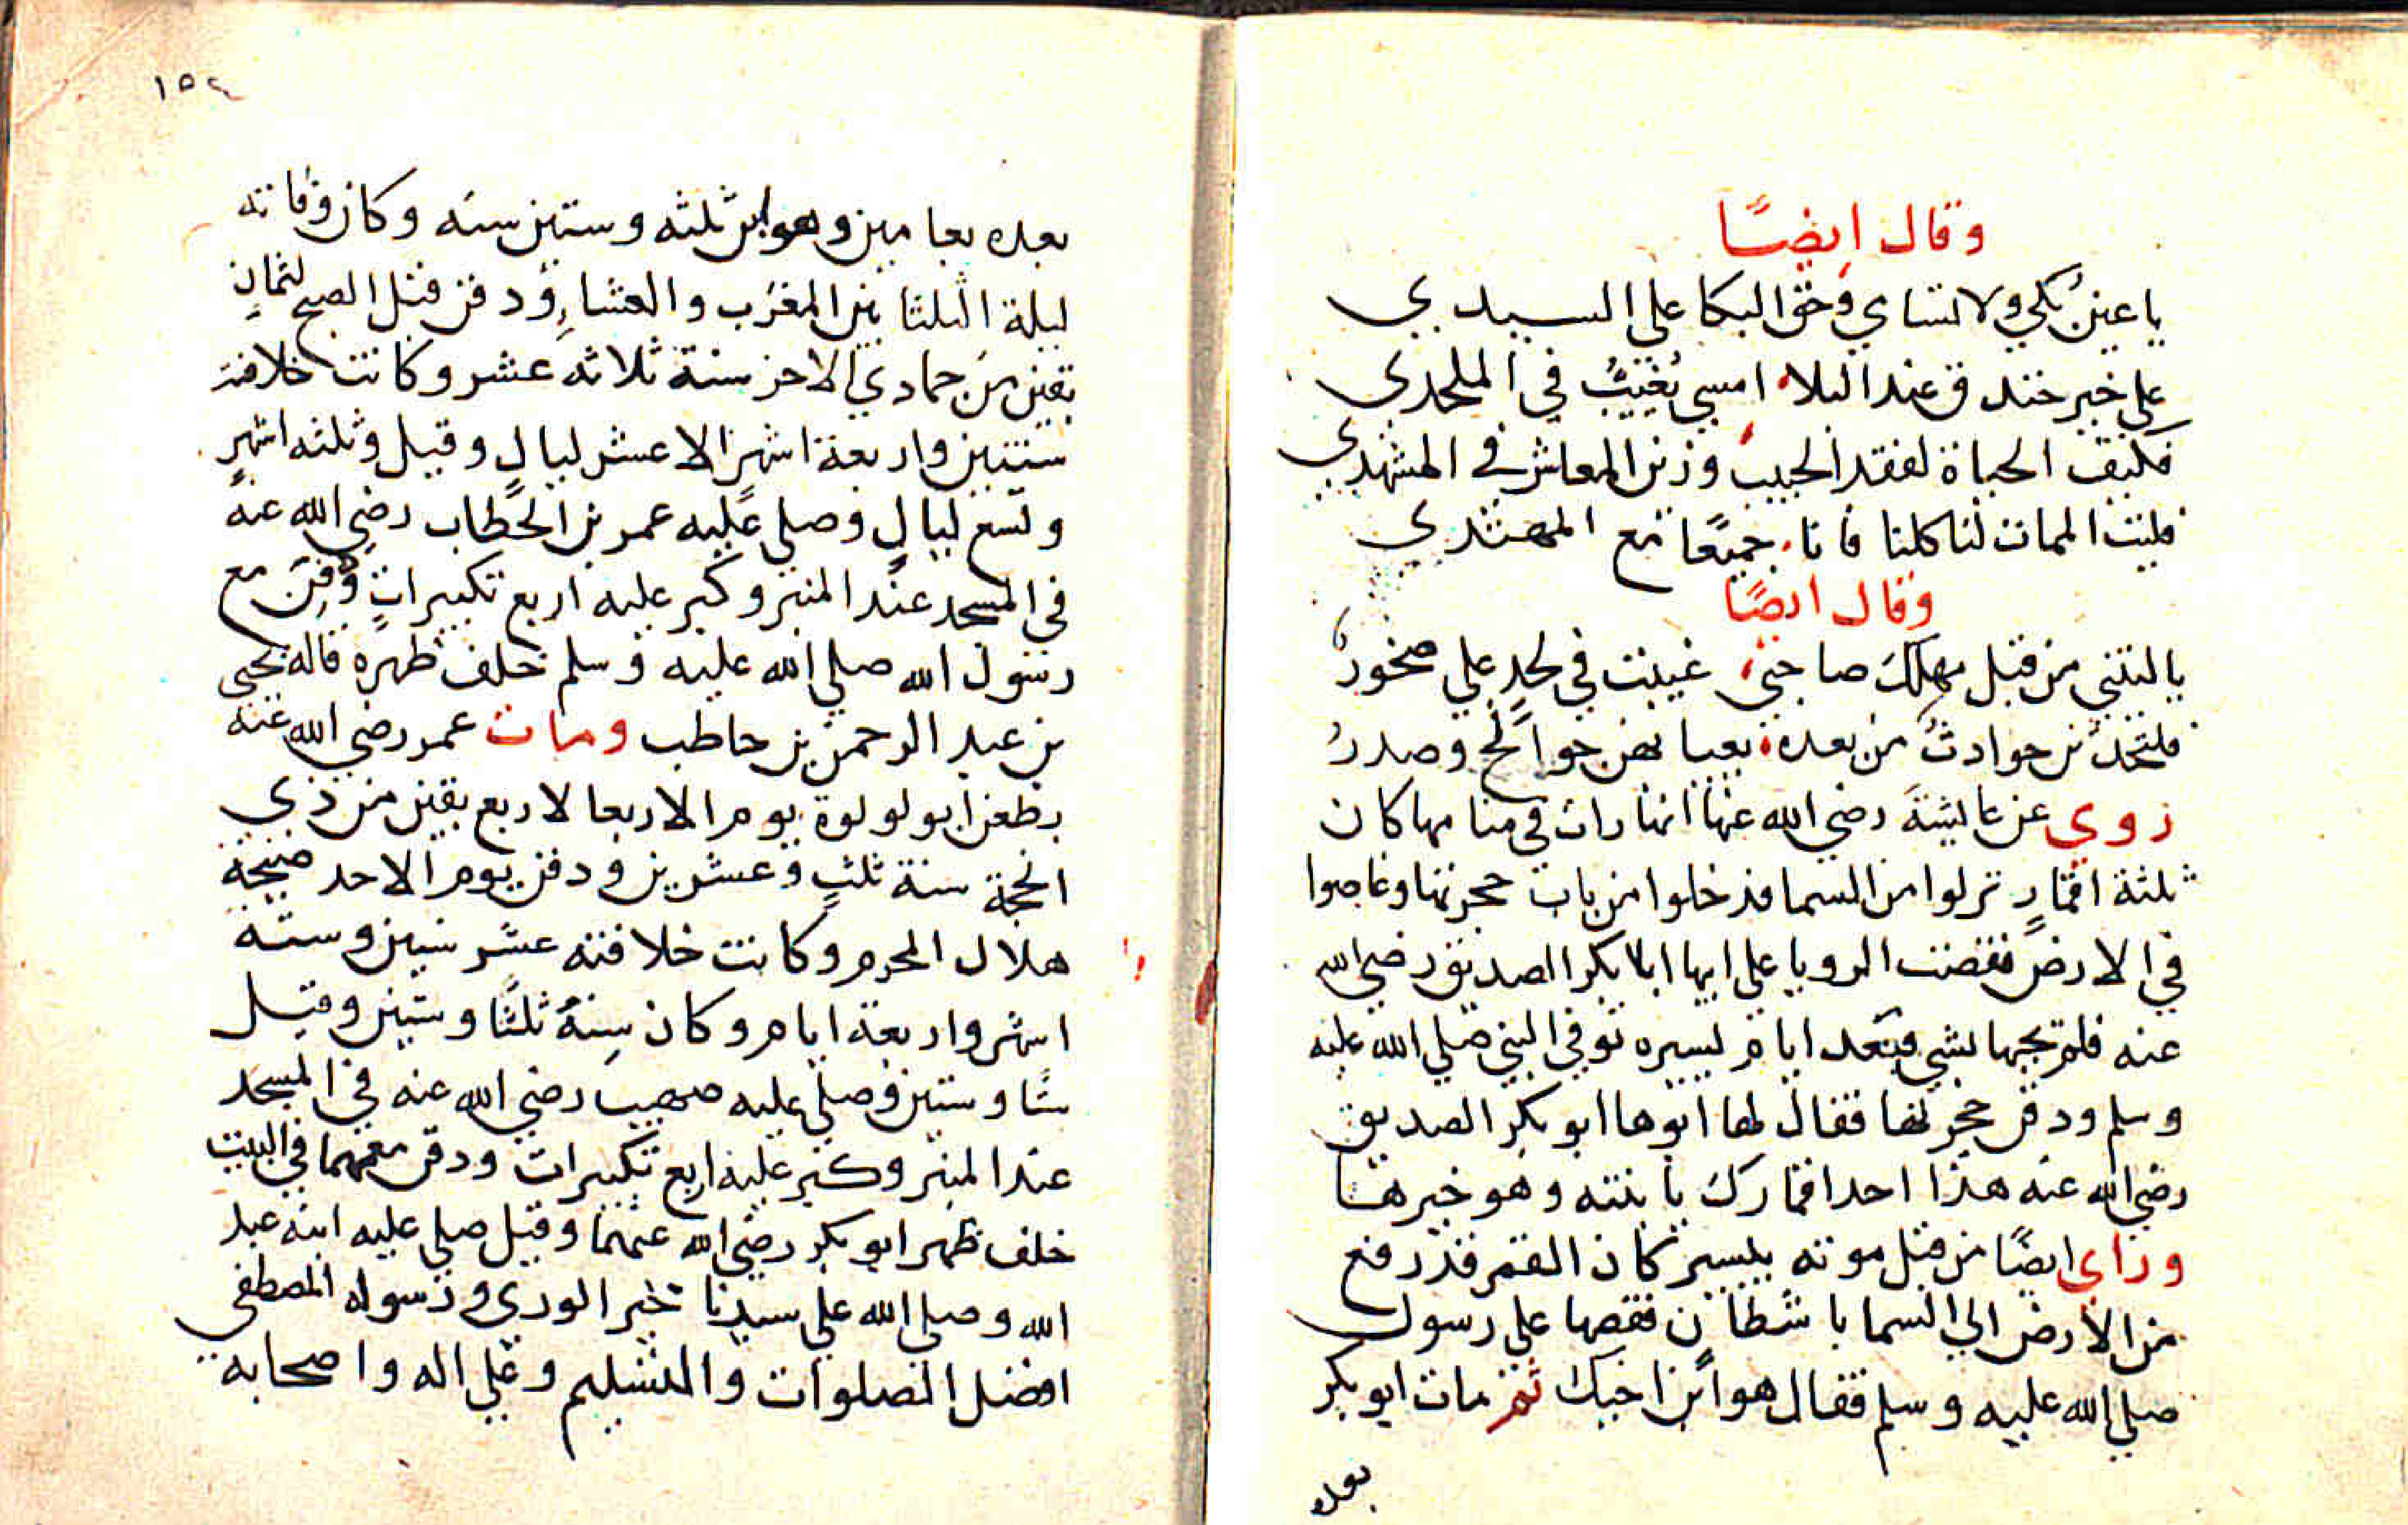 وقال ايضًا
يا عين بكي ولا تسامي وحق البكا على السيدي
على خير خندف عند البلاء امسي يُغيبُ في الملحدي
فكيف الحياة لفقد الحبيب وزين المعاشر في المشهدي
فليت الممات لنا كلنا فانا جميعًا مع المهتدي
وقال ايضًا
ياليتني من قبل مهلك صاحبي غيبت في لحدٍ علي صخورُ
فلتحدثن حوادثُ من بعده يعيا بهن جوانح وصدورُ
روي عن عايشة رضي الله عنها انها رات في منامها كان
ثلثة اقمارٍ نزلوا من السما فدخلوا من باب حجرتها وغاصوا
في الارض فقصت الرويا على ابيها ابا بكر الصديق رضي الله
عنه فلم يجبها بشي فبعد ايام يسيره توفي النبي صلي الله عليه
وسلم ودفن حجرتها فقال لها ابوها ابو بكر الصديق
رضي الله عنه هذا احد اقمارك يا بنته وهو خيرها
وراى ايضًا من قبل موته بيسير كان القمر قد رفع
من الارض الي السما باشطان فقصها على رسول
صلي الله عليه وسلم فقال هو ابن اخيك ثم مات ابو بكر
بعده
١٥٤
بعده بعامين وهو ابن ثلثه وستين سنه وكان وفاته
ليلة الثلثا بين المغرب والعشاءِ ودفن قبل الصبح لثمانٍ
بقين من جمادي الاخر سنة ثلاثه عشر وكانت خلافته
سنتين واربعة اشهر الا عشر ليالٍ وقيل وثلثه اشهرٍ
وتسع ليالٍ وصلى عليه عمر بن الخطاب رضي الله عنه
في المسجد عند المنبر وكبر عليه اربع تكبيراتٍ ودُفِنَ مع
رسول الله صلي الله عليه وسلم خلف ظهره قاله يحيى
بن عبد الرحمن بن حاطب ومات عمر رضي الله عنه
بطعن ابو لولوة يوم الاربعا لاربع بقين من ذي
الحجة سنة ثلثٍ وعشرين ودفن يوم الاحد صبيحة
هلال المحرم وكانت خلافته عشر سنين وستة
اشهر واربعة ايام وكان سِنهُ ثلثًا وستين وقيل
ستًا وستين وصلى عليه صهيب رضي الله عنه في المسجد
عند المنبر وكبر عليه اربع تكبيرات ودفن معهما في البيت
خلف ظهر ابو بكر رضي الله عنهما وقيل صلي عليه ابنه عبد
الله وصلي الله علي سيدنا خير الوري ورسوله المصطفي
افضل الصلوات والتسليم وعلي اله واصحابه